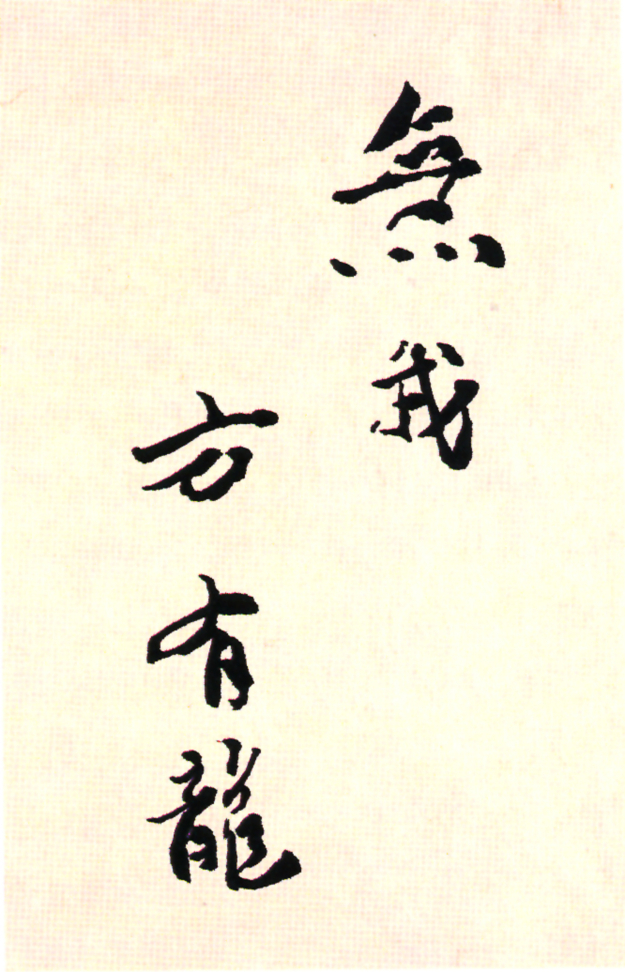 無我
方有龍